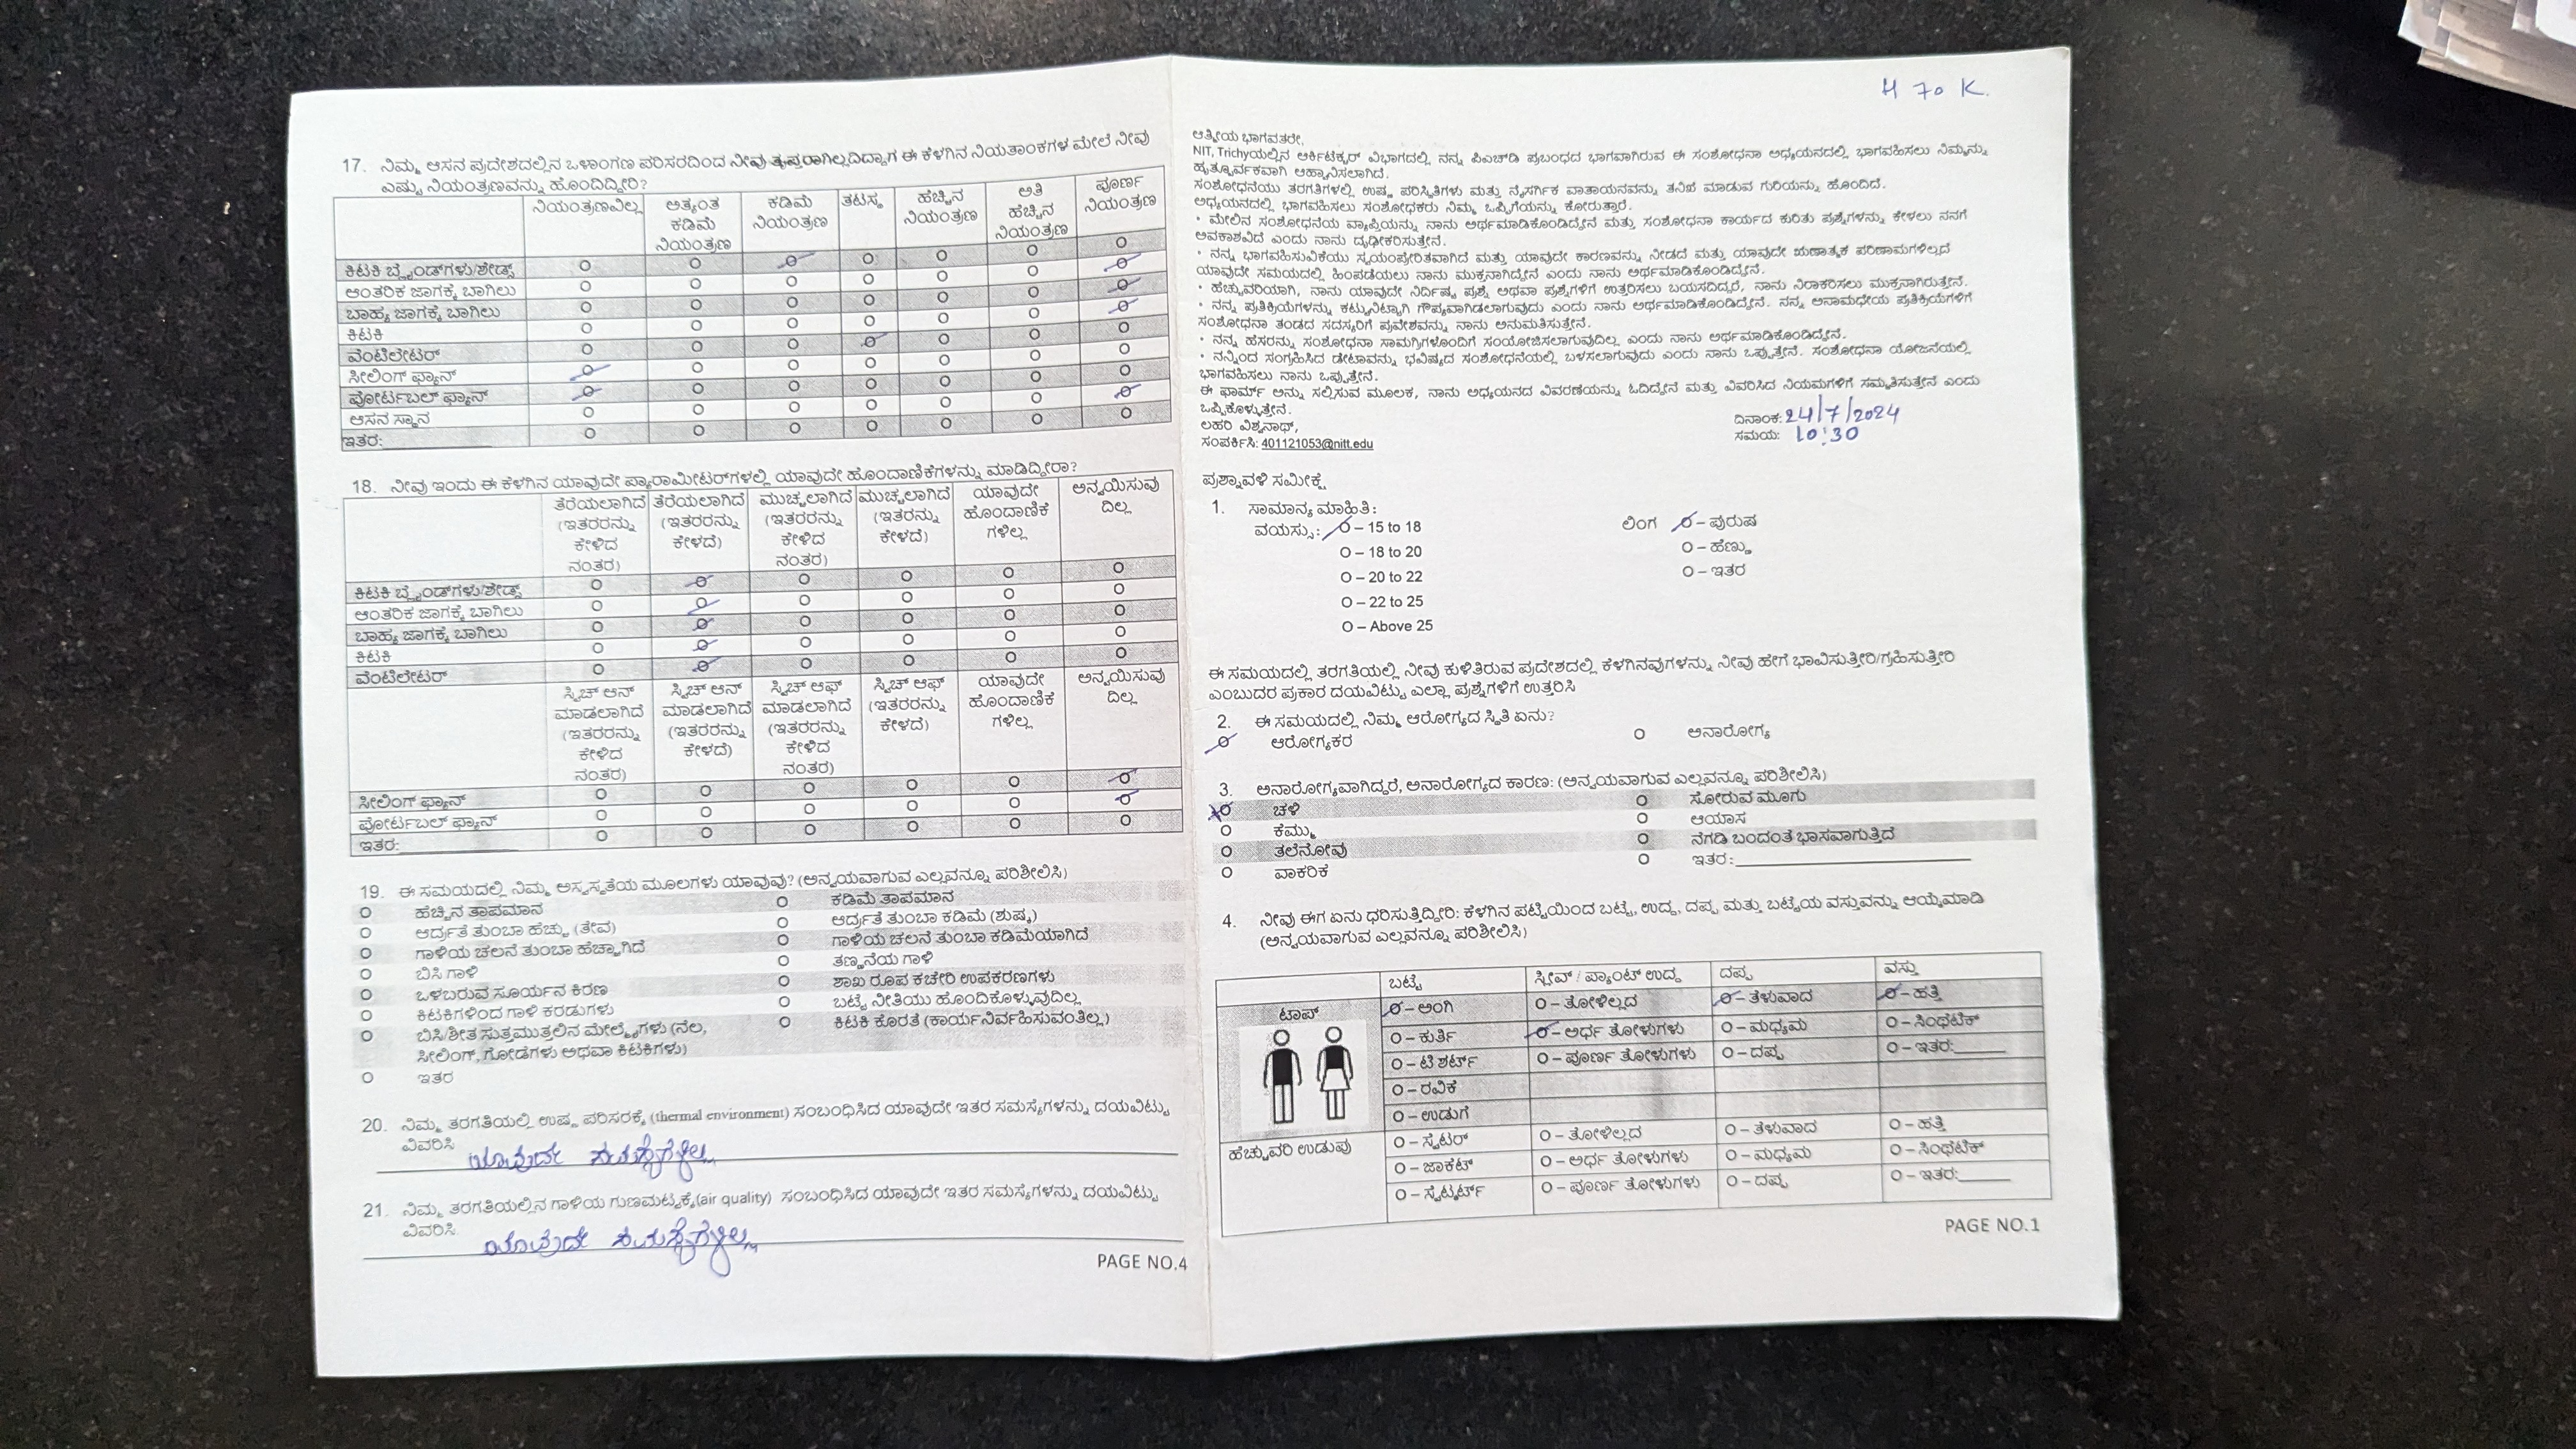 17. ನಿಮ್ಮ ಆಸನ ಪ್ರದೇಶದಲ್ಲಿನ ಒಳಾಂಗಣ ಪರಿಸರದಿಂದ ನೀವು ತೃಪ್ತರಾಗಿಲ್ಲದಿದ್ದಾಗ ಈ ಕೆಳಗಿನ ನಿಯತಾಂಕಗಳ ಮೇಲೆ ನೀವು
ಎಷ್ಟು ನಿಯಂತ್ರಣವನ್ನು ಹೊಂದಿದ್ದೀರಿ?
ನಿಯಂತ್ರಣವಿಲ್ಲ ಅತ್ಯಂತ ಕಡಿಮೆ ನಿಯಂತ್ರಣ ಕಡಿಮೆ ನಿಯಂತ್ರಣ ತಟಸ್ಥ ಹೆಚ್ಚಿನ ನಿಯಂತ್ರಣ ಅತಿ ಹೆಚ್ಚಿನ ನಿಯಂತ್ರಣ ಪೂರ್ಣ ನಿಯಂತ್ರಣ
ಕಿಟಕಿ ಬ್ಲೈಂಡ್‌ಗಳು/ಶೇಡ್ಸ್ O O O O O O O
ಆಂತರಿಕ ಜಾಗಕ್ಕೆ ಬಾಗಿಲು O O O O O O O
ಬಾಹ್ಯ ಜಾಗಕ್ಕೆ ಬಾಗಿಲು O O O O O O O
ಕಿಟಕಿ O O O O O O O
ವೆಂಟಿಲೇಟರ್ O O O O O O O
ಸೀಲಿಂಗ್ ಫ್ಯಾನ್ O O O O O O O
ಪೋರ್ಟಬಲ್ ಫ್ಯಾನ್ O O O O O O O
ಆಸನ ಸ್ಥಾನ O O O O O O O
ಇತರ: O O O O O O O
18. ನೀವು ಇಂದು ಈ ಕೆಳಗಿನ ಯಾವುದೇ ಪ್ಯಾರಾಮೀಟರ್‌ಗಳಲ್ಲಿ ಯಾವುದೇ ಹೊಂದಾಣಿಕೆಗಳನ್ನು ಮಾಡಿದ್ದೀರಾ?
ತೆರೆಯಲಾಗಿದೆ (ಇತರರನ್ನು ಕೇಳಿದ ನಂತರ) ತೆರೆಯಲಾಗಿದೆ (ಇತರರನ್ನು ಕೇಳದೆ) ಮುಚ್ಚಲಾಗಿದೆ (ಇತರರನ್ನು ಕೇಳಿದ ನಂತರ) ಮುಚ್ಚಲಾಗಿದೆ (ಇತರನ್ನು ಕೇಳದೆ) ಯಾವುದೇ ಹೊಂದಾಣಿಕೆ ಗಳಿಲ್ಲ ಅನ್ವಯಿಸುವು ದಿಲ್ಲ
ಕಿಟಕಿ ಬ್ಲೈಂಡ್‌ಗಳು/ಶೇಡ್ಸ್ O O O O O O
ಆಂತರಿಕ ಜಾಗಕ್ಕೆ ಬಾಗಿಲು O O O O O O
ಬಾಹ್ಯ ಜಾಗಕ್ಕೆ ಬಾಗಿಲು O O O O O O
ಕಿಟಕಿ O O O O O O
ವೆಂಟಿಲೇಟರ್ O O O O O O
ಸ್ವಿಚ್ ಆನ್ ಮಾಡಲಾಗಿದೆ (ಇತರರನ್ನು ಕೇಳಿದ ನಂತರ) ಸ್ವಿಚ್ ಆನ್ ಮಾಡಲಾಗಿದೆ (ಇತರರನ್ನು ಕೇಳದೆ) ಸ್ವಿಚ್ ಆಫ್ ಮಾಡಲಾಗಿದೆ (ಇತರರನ್ನು ಕೇಳಿದ ನಂತರ) ಸ್ವಿಚ್ ಆಫ್ (ಇತರರನ್ನು ಕೇಳದೆ) ಯಾವುದೇ ಹೊಂದಾಣಿಕೆ ಗಳಿಲ್ಲ ಅನ್ವಯಿಸುವು ದಿಲ್ಲ
ಸೀಲಿಂಗ್ ಫ್ಯಾನ್ O O O O O O
ಪೋರ್ಟಬಲ್ ಫ್ಯಾನ್ O O O O O O
ಇತರ: O O O O O O
19. ಈ ಸಮಯದಲ್ಲಿ ನಿಮ್ಮ ಅಸ್ವಸ್ಥತೆಯ ಮೂಲಗಳು ಯಾವುವು? (ಅನ್ವಯವಾಗುವ ಎಲ್ಲವನ್ನೂ ಪರಿಶೀಲಿಸಿ)
O ಹೆಚ್ಚಿನ ತಾಪಮಾನ O ಕಡಿಮೆ ತಾಪಮಾನ
O ಆರ್ದ್ರತೆ ತುಂಬಾ ಹೆಚ್ಚು (ತೇವ) O ಆರ್ದ್ರತೆ ತುಂಬಾ ಕಡಿಮೆ (ಶುಷ್ಕ)
O ಗಾಳಿಯ ಚಲನೆ ತುಂಬಾ ಹೆಚ್ಚಾಗಿದೆ O ಗಾಳಿಯ ಚಲನೆ ತುಂಬಾ ಕಡಿಮೆಯಾಗಿದೆ
O ಬಿಸಿ ಗಾಳಿ O ತಣ್ಣನೆಯ ಗಾಳಿ
O ಒಳಬರುವ ಸೂರ್ಯನ ಕಿರಣ O ಶಾಖ ರೂಪ ಕಚೇರಿ ಉಪಕರಣಗಳು
O ಕಿಟಕಿಗಳಿಂದ ಗಾಳಿ ಕರಡುಗಳು O ಬಟ್ಟೆ ನೀತಿಯು ಹೊಂದಿಕೊಳ್ಳುವುದಿಲ್ಲ
O ಬಿಸಿ/ಶೀತ ಸುತ್ತಮುತ್ತಲಿನ ಮೇಲ್ಮೈಗಳು (ನೆಲ, O ಕಿಟಕಿ ಕೊರತೆ (ಕಾರ್ಯನಿರ್ವಹಿಸುವಂತಿಲ್ಲ)
ಸೀಲಿಂಗ್, ಗೋಡೆಗಳು ಅಥವಾ ಕಿಟಕಿಗಳು)
O ಇತರ
20. ನಿಮ್ಮ ತರಗತಿಯಲ್ಲಿ ಉಷ್ಣ ಪರಿಸರಕ್ಕೆ (thermal environment) ಸಂಬಂಧಿಸಿದ ಯಾವುದೇ ಇತರ ಸಮಸ್ಯೆಗಳನ್ನು ದಯವಿಟ್ಟು
ವಿವರಿಸಿ
ಯಾವುದೇ ಸಮಸ್ಯೆಗಳಿಲ್ಲ
21. ನಿಮ್ಮ ತರಗತಿಯಲ್ಲಿನ ಗಾಳಿಯ ಗುಣಮಟ್ಟಕ್ಕೆ(air quality) ಸಂಬಂಧಿಸಿದ ಯಾವುದೇ ಇತರ ಸಮಸ್ಯೆಗಳನ್ನು ದಯವಿಟ್ಟು
ವಿವರಿಸಿ
ಯಾವುದೇ ಸಮಸ್ಯೆಗಳಿಲ್ಲ
PAGE NO.4
H 70 K.
ಆತ್ಮೀಯ ಭಾಗವತರೇ,
NIT, Trichyಯಲ್ಲಿನ ಆರ್ಕಿಟೆಕ್ಚರ್ ವಿಭಾಗದಲ್ಲಿ ನನ್ನ ಪಿಎಚ್‌ಡಿ ಪ್ರಬಂಧದ ಭಾಗವಾಗಿರುವ ಈ ಸಂಶೋಧನಾ ಅಧ್ಯಯನದಲ್ಲಿ ಭಾಗವಹಿಸಲು ನಿಮ್ಮನ್ನು
ಹೃತ್ಪೂರ್ವಕವಾಗಿ ಆಹ್ವಾನಿಸಲಾಗಿದೆ.
ಸಂಶೋಧನೆಯು ತರಗತಿಗಳಲ್ಲಿ ಉಷ್ಣ ಪರಿಸ್ಥಿತಿಗಳು ಮತ್ತು ನೈಸರ್ಗಿಕ ವಾತಾಯನವನ್ನು ತನಿಖೆ ಮಾಡುವ ಗುರಿಯನ್ನು ಹೊಂದಿದೆ.
ಅಧ್ಯಯನದಲ್ಲಿ ಭಾಗವಹಿಸಲು ಸಂಶೋಧಕರು ನಿಮ್ಮ ಒಪ್ಪಿಗೆಯನ್ನು ಕೋರುತ್ತಾರೆ.
• ಮೇಲಿನ ಸಂಶೋಧನೆಯ ವ್ಯಾಪ್ತಿಯನ್ನು ನಾನು ಅರ್ಥಮಾಡಿಕೊಂಡಿದ್ದೇನೆ ಮತ್ತು ಸಂಶೋಧನಾ ಕಾರ್ಯದ ಕುರಿತು ಪ್ರಶ್ನೆಗಳನ್ನು ಕೇಳಲು ನನಗೆ
ಅವಕಾಶವಿದೆ ಎಂದು ನಾನು ದೃಢೀಕರಿಸುತ್ತೇನೆ.
• ನನ್ನ ಭಾಗವಹಿಸುವಿಕೆಯು ಸ್ವಯಂಪ್ರೇರಿತವಾಗಿದೆ ಮತ್ತು ಯಾವುದೇ ಕಾರಣವನ್ನು ನೀಡದೆ ಮತ್ತು ಯಾವುದೇ ಋಣಾತ್ಮಕ ಪರಿಣಾಮಗಳಿಲ್ಲದೆ
ಯಾವುದೇ ಸಮಯದಲ್ಲಿ ಹಿಂಪಡೆಯಲು ನಾನು ಮುಕ್ತನಾಗಿದ್ದೇನೆ ಎಂದು ನಾನು ಅರ್ಥಮಾಡಿಕೊಂಡಿದ್ದೇನೆ.
• ಹೆಚ್ಚುವರಿಯಾಗಿ, ನಾನು ಯಾವುದೇ ನಿರ್ದಿಷ್ಟ ಪ್ರಶ್ನೆ ಅಥವಾ ಪ್ರಶ್ನೆಗಳಿಗೆ ಉತ್ತರಿಸಲು ಬಯಸದಿದ್ದರೆ, ನಾನು ನಿರಾಕರಿಸಲು ಮುಕ್ತನಾಗಿರುತ್ತೇನೆ.
• ನನ್ನ ಪ್ರತಿಕ್ರಿಯೆಗಳನ್ನು ಕಟ್ಟುನಿಟ್ಟಾಗಿ ಗೌಪ್ಯವಾಗಿಡಲಾಗುವುದು ಎಂದು ನಾನು ಅರ್ಥಮಾಡಿಕೊಂಡಿದ್ದೇನೆ. ನನ್ನ ಅನಾಮಧೇಯ ಪ್ರತಿಕ್ರಿಯೆಗಳಿಗೆ
ಸಂಶೋಧನಾ ತಂಡದ ಸದಸ್ಯರಿಗೆ ಪ್ರವೇಶವನ್ನು ನಾನು ಅನುಮತಿಸುತ್ತೇನೆ.
• ನನ್ನ ಹೆಸರನ್ನು ಸಂಶೋಧನಾ ಸಾಮಗ್ರಿಗಳೊಂದಿಗೆ ಸಂಯೋಜಿಸಲಾಗುವುದಿಲ್ಲ ಎಂದು ನಾನು ಅರ್ಥಮಾಡಿಕೊಂಡಿದ್ದೇನೆ.
• ನನ್ನಿಂದ ಸಂಗ್ರಹಿಸಿದ ಡೇಟಾವನ್ನು ಭವಿಷ್ಯದ ಸಂಶೋಧನೆಯಲ್ಲಿ ಬಳಸಲಾಗುವುದು ಎಂದು ನಾನು ಒಪ್ಪುತ್ತೇನೆ. ಸಂಶೋಧನಾ ಯೋಜನೆಯಲ್ಲಿ
ಭಾಗವಹಿಸಲು ನಾನು ಒಪ್ಪುತ್ತೇನೆ.
ಈ ಫಾರ್ಮ್ ಅನ್ನು ಸಲ್ಲಿಸುವ ಮೂಲಕ, ನಾನು ಅಧ್ಯಯನದ ವಿವರಣೆಯನ್ನು ಓದಿದ್ದೇನೆ ಮತ್ತು ವಿವರಿಸಿದ ನಿಯಮಗಳಿಗೆ ಸಮ್ಮತಿಸುತ್ತೇನೆ ಎಂದು
ಒಪ್ಪಿಕೊಳ್ಳುತ್ತೇನೆ.
ಲಹರಿ ವಿಶ್ವನಾಥ್,
ಸಂಪರ್ಕಿಸಿ: 401121053@nitt.edu
ದಿನಾಂಕ: 24/7/2024
ಸಮಯ: 10:30
ಪ್ರಶ್ನಾವಳಿ ಸಮೀಕ್ಷೆ
1. ಸಾಮಾನ್ಯ ಮಾಹಿತಿ:
ವಯಸ್ಸು: O – 15 to 18 ಲಿಂಗ O – ಪುರುಷ
O – 18 to 20 O – ಹೆಣ್ಣು
O – 20 to 22 O – ಇತರ
O – 22 to 25
O – Above 25
ಈ ಸಮಯದಲ್ಲಿ ತರಗತಿಯಲ್ಲಿ ನೀವು ಕುಳಿತಿರುವ ಪ್ರದೇಶದಲ್ಲಿ ಕೆಳಗಿನವುಗಳನ್ನು ನೀವು ಹೇಗೆ ಭಾವಿಸುತ್ತೀರಿ/ಗ್ರಹಿಸುತ್ತೀರಿ
ಎಂಬುದರ ಪ್ರಕಾರ ದಯವಿಟ್ಟು ಎಲ್ಲಾ ಪ್ರಶ್ನೆಗಳಿಗೆ ಉತ್ತರಿಸಿ
2. ಈ ಸಮಯದಲ್ಲಿ ನಿಮ್ಮ ಆರೋಗ್ಯದ ಸ್ಥಿತಿ ಏನು?
O ಆರೋಗ್ಯಕರ O ಅನಾರೋಗ್ಯ
3. ಅನಾರೋಗ್ಯವಾಗಿದ್ದರೆ, ಅನಾರೋಗ್ಯದ ಕಾರಣ: (ಅನ್ವಯವಾಗುವ ಎಲ್ಲವನ್ನೂ ಪರಿಶೀಲಿಸಿ)
O ಚಳಿ O ಸೋರುವ ಮೂಗು
O ಕೆಮ್ಮು O ಆಯಾಸ
O ತಲೆನೋವು O ನೆಗಡಿ ಬಂದಂತೆ ಭಾಸವಾಗುತ್ತಿದೆ
O ವಾಕರಿಕೆ O ಇತರ:
4. ನೀವು ಈಗ ಏನು ಧರಿಸುತ್ತಿದ್ದೀರಿ: ಕೆಳಗಿನ ಪಟ್ಟಿಯಿಂದ ಬಟ್ಟೆ, ಉದ್ದ, ದಪ್ಪ ಮತ್ತು ಬಟ್ಟೆಯ ವಸ್ತುವನ್ನು ಆಯ್ಕೆಮಾಡಿ
(ಅನ್ವಯವಾಗುವ ಎಲ್ಲವನ್ನೂ ಪರಿಶೀಲಿಸಿ)
ಬಟ್ಟೆ ಸ್ಲೀವ್ / ಪ್ಯಾಂಟ್ ಉದ್ದ ದಪ್ಪ ವಸ್ತು
ಟಾಪ್ O – ಅಂಗಿ O – ತೋಳಿಲ್ಲದ O – ತೆಳುವಾದ O – ಹತ್ತಿ
O – ಕುರ್ತಿ O – ಅರ್ಧ ತೋಳುಗಳು O – ಮಧ್ಯಮ O – ಸಿಂಥೆಟಿಕ್
O – ಟಿ ಶರ್ಟ್ O – ಪೂರ್ಣ ತೋಳುಗಳು O – ದಪ್ಪ O – ಇತರ:
O – ರವಿಕೆ
O – ಉಡುಗೆ
ಹೆಚ್ಚುವರಿ ಉಡುಪು O – ಸ್ವೆಟರ್ O – ತೋಳಿಲ್ಲದ O – ತೆಳುವಾದ O – ಹತ್ತಿ
O – ಜಾಕೆಟ್ O – ಅರ್ಧ ತೋಳುಗಳು O – ಮಧ್ಯಮ O – ಸಿಂಥೆಟಿಕ್
O – ಸ್ವೆಟ್ಶರ್ಟ್ O – ಪೂರ್ಣ ತೋಳುಗಳು O – ದಪ್ಪ O – ಇತರ:
PAGE NO.1